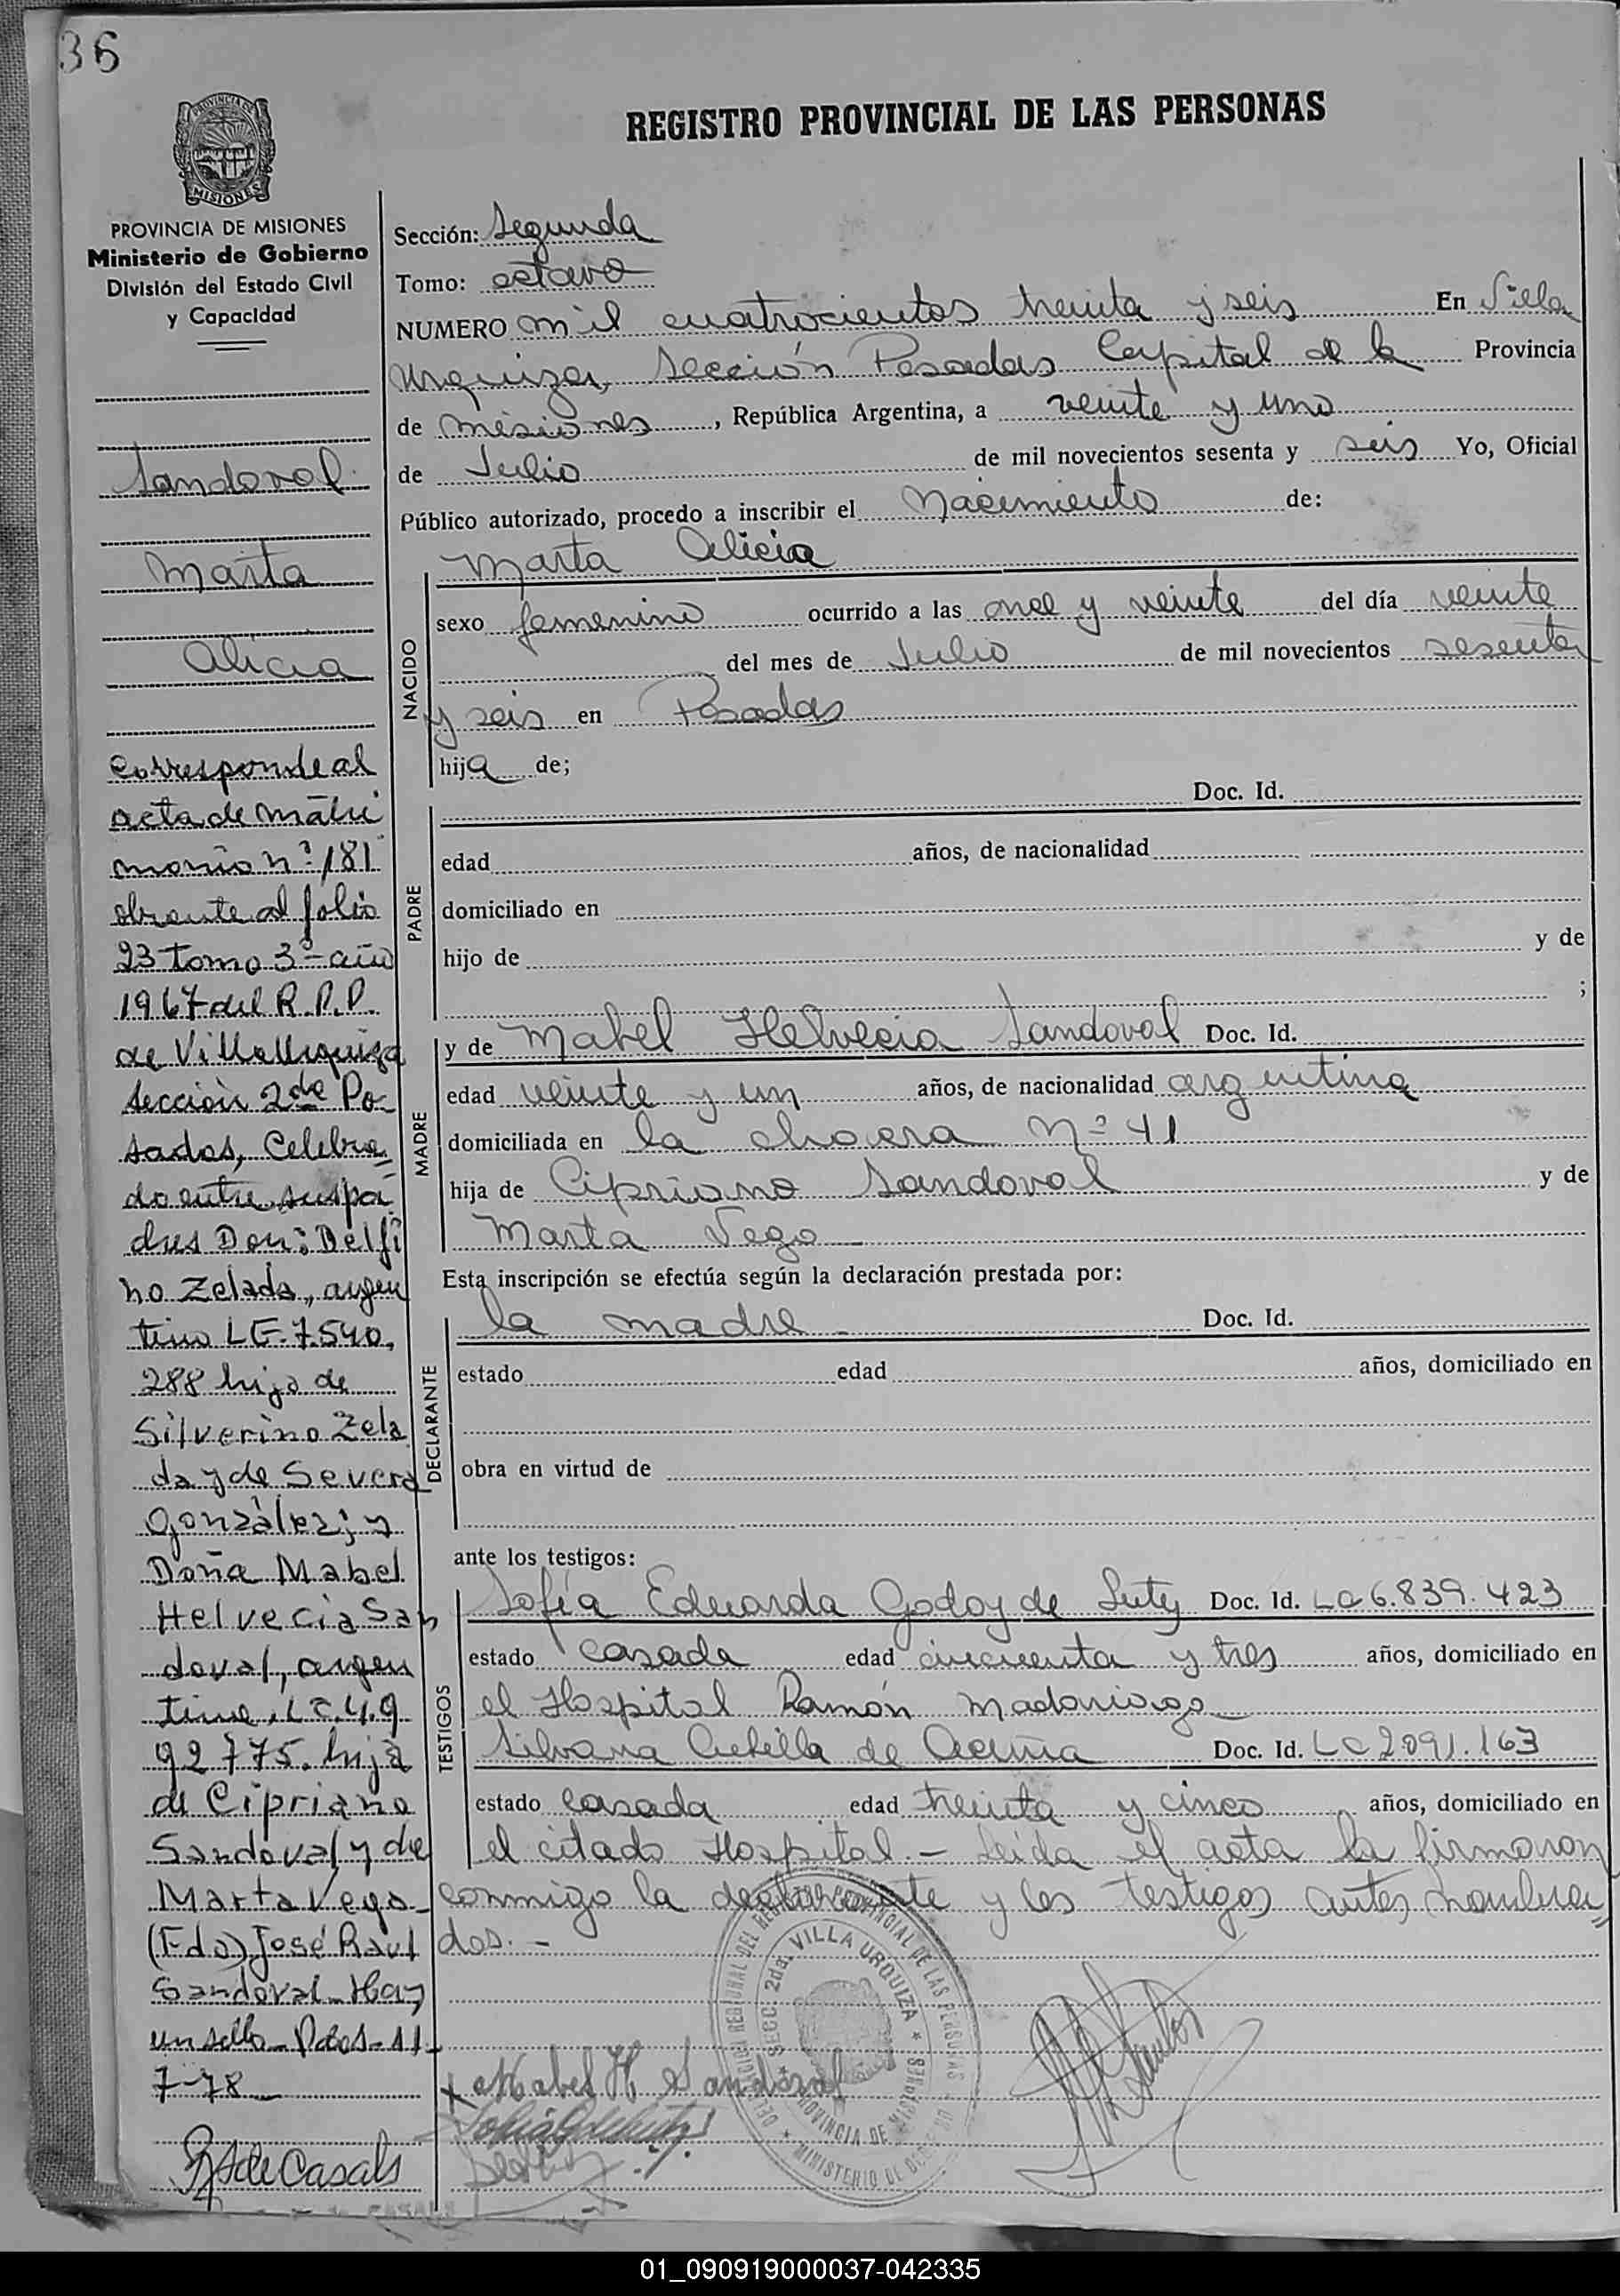 36
REGISTRO PROVINCIAL DE LAS PERSONAS
PROVINCIA DE MISIONES
PROVINCIA DE MISIONES
Ministerio de Gobierno
División del Estado Civil
y Capacidad
Sandoval
Marta
Alicia
Corresponde al
acta de matri
monio nº 181
obrante al folio
23 tomo 3º - año
1967 del R.P.P.
de Villa Urquiza
Sección 2da Po-
sadas, Celebra=
do entre sus pa
dres Don: Delfi
no Zelada, argen
tino L.E. 7.540.
288 hijo de
Silverino Zela
da y de Severa
González; y
Doña Mabel
Helvecia San
doval, argen
tina, L.C. 4.9
92 775. hija
de Cipriano
Sandoval y de
Marta Vega-
(Fdo) José Raul
Sandoval - Hay
un sello - Pdas - 11-
7-78
de Casals
Sección: Segunda
Tomo: octavo
NUMERO mil cuatrocientos treinta y seis En Villa
Urquiza, Sección Posadas Capital de la Provincia
de Misiones, República Argentina, a veinte y uno
de Julio de mil novecientos sesenta y seis Yo, Oficial
Público autorizado, procedo a inscribir el Nacimiento de:
NACIDO
Marta Alicia
sexo femenino ocurrido a las once y veinte del día veinte
del mes de Julio de mil novecientos sesenta
y seis en Posadas
hija de;
PADRE
Doc. Id.
edad años, de nacionalidad
domiciliado en
hijo de y de
;
MADRE
y de Mabel Helvecia Sandoval Doc. Id.
edad veinte y un años, de nacionalidad argentina
domiciliada en la chacra Nº 41
hija de Cipriano Sandoval y de
Marta Vega
Esta inscripción se efectúa según la declaración prestada por:
DECLARANTE
la madre Doc. Id.
estado edad años, domiciliado en
obra en virtud de
ante los testigos:
TESTIGOS
Sofía Eduarda Godoy de Doc. Id. LC 6.839.423
estado casada edad cincuenta y tres años, domiciliado en
el Hospital Ramón Madariaga
Silvana de Acuña Doc. Id. LC 2091.163
estado casada edad treinta y cinco años, domiciliado en
el citado Hospital.- Leida el acta la firmaron
conmigo la declarante y los testigos antes nombra=
dos.-
DELEGACION REGIONAL DEL REGISTRO PROVINCIAL DE LAS PERSONAS
SECC. 2da. VILLA URQUIZA
PROVINCIA DE MISIONES
MINISTERIO DE GOBIERNO
x Mabel H. Sandoval
01_090919000037-042335